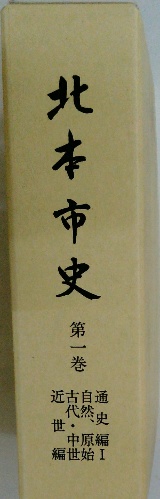 北本市史
第一巻
通史編Ⅰ
自然、原始
古代・中世
近世編